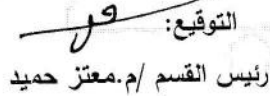 التوقيع:
رئيس القسم /م.معتز حميد